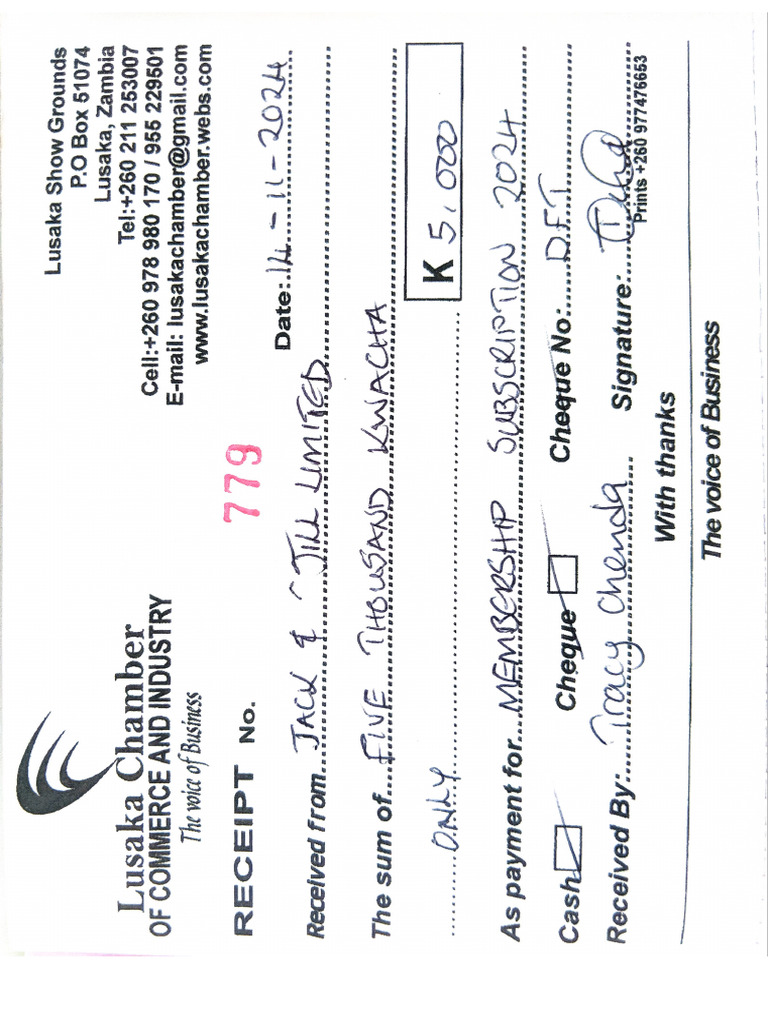 Lusaka Chamber
OF COMMERCE AND INDUSTRY
The voice of Business
Lusaka Show Grounds
P.O Box 51074
Lusaka, Zambia
Tel:+260 211 253007
Cell:+260 978 980 170 / 955 229501
E-mail: lusakachamber@gmail.com
www.lusakachamber.webs.com
RECEIPT No. 779
Date: 14-11-2024
Received from JACK & JILL LIMITED
The sum of FIVE THOUSAND KWACHA
ONLY K 5,000
As payment for MEMBERSHIP SUBSCRIPTION 2024
Cash Cheque Cheque No: D.F.T
Received By: Tracy Chenda Signature:
Prints +260 977476653
With thanks
The voice of Business